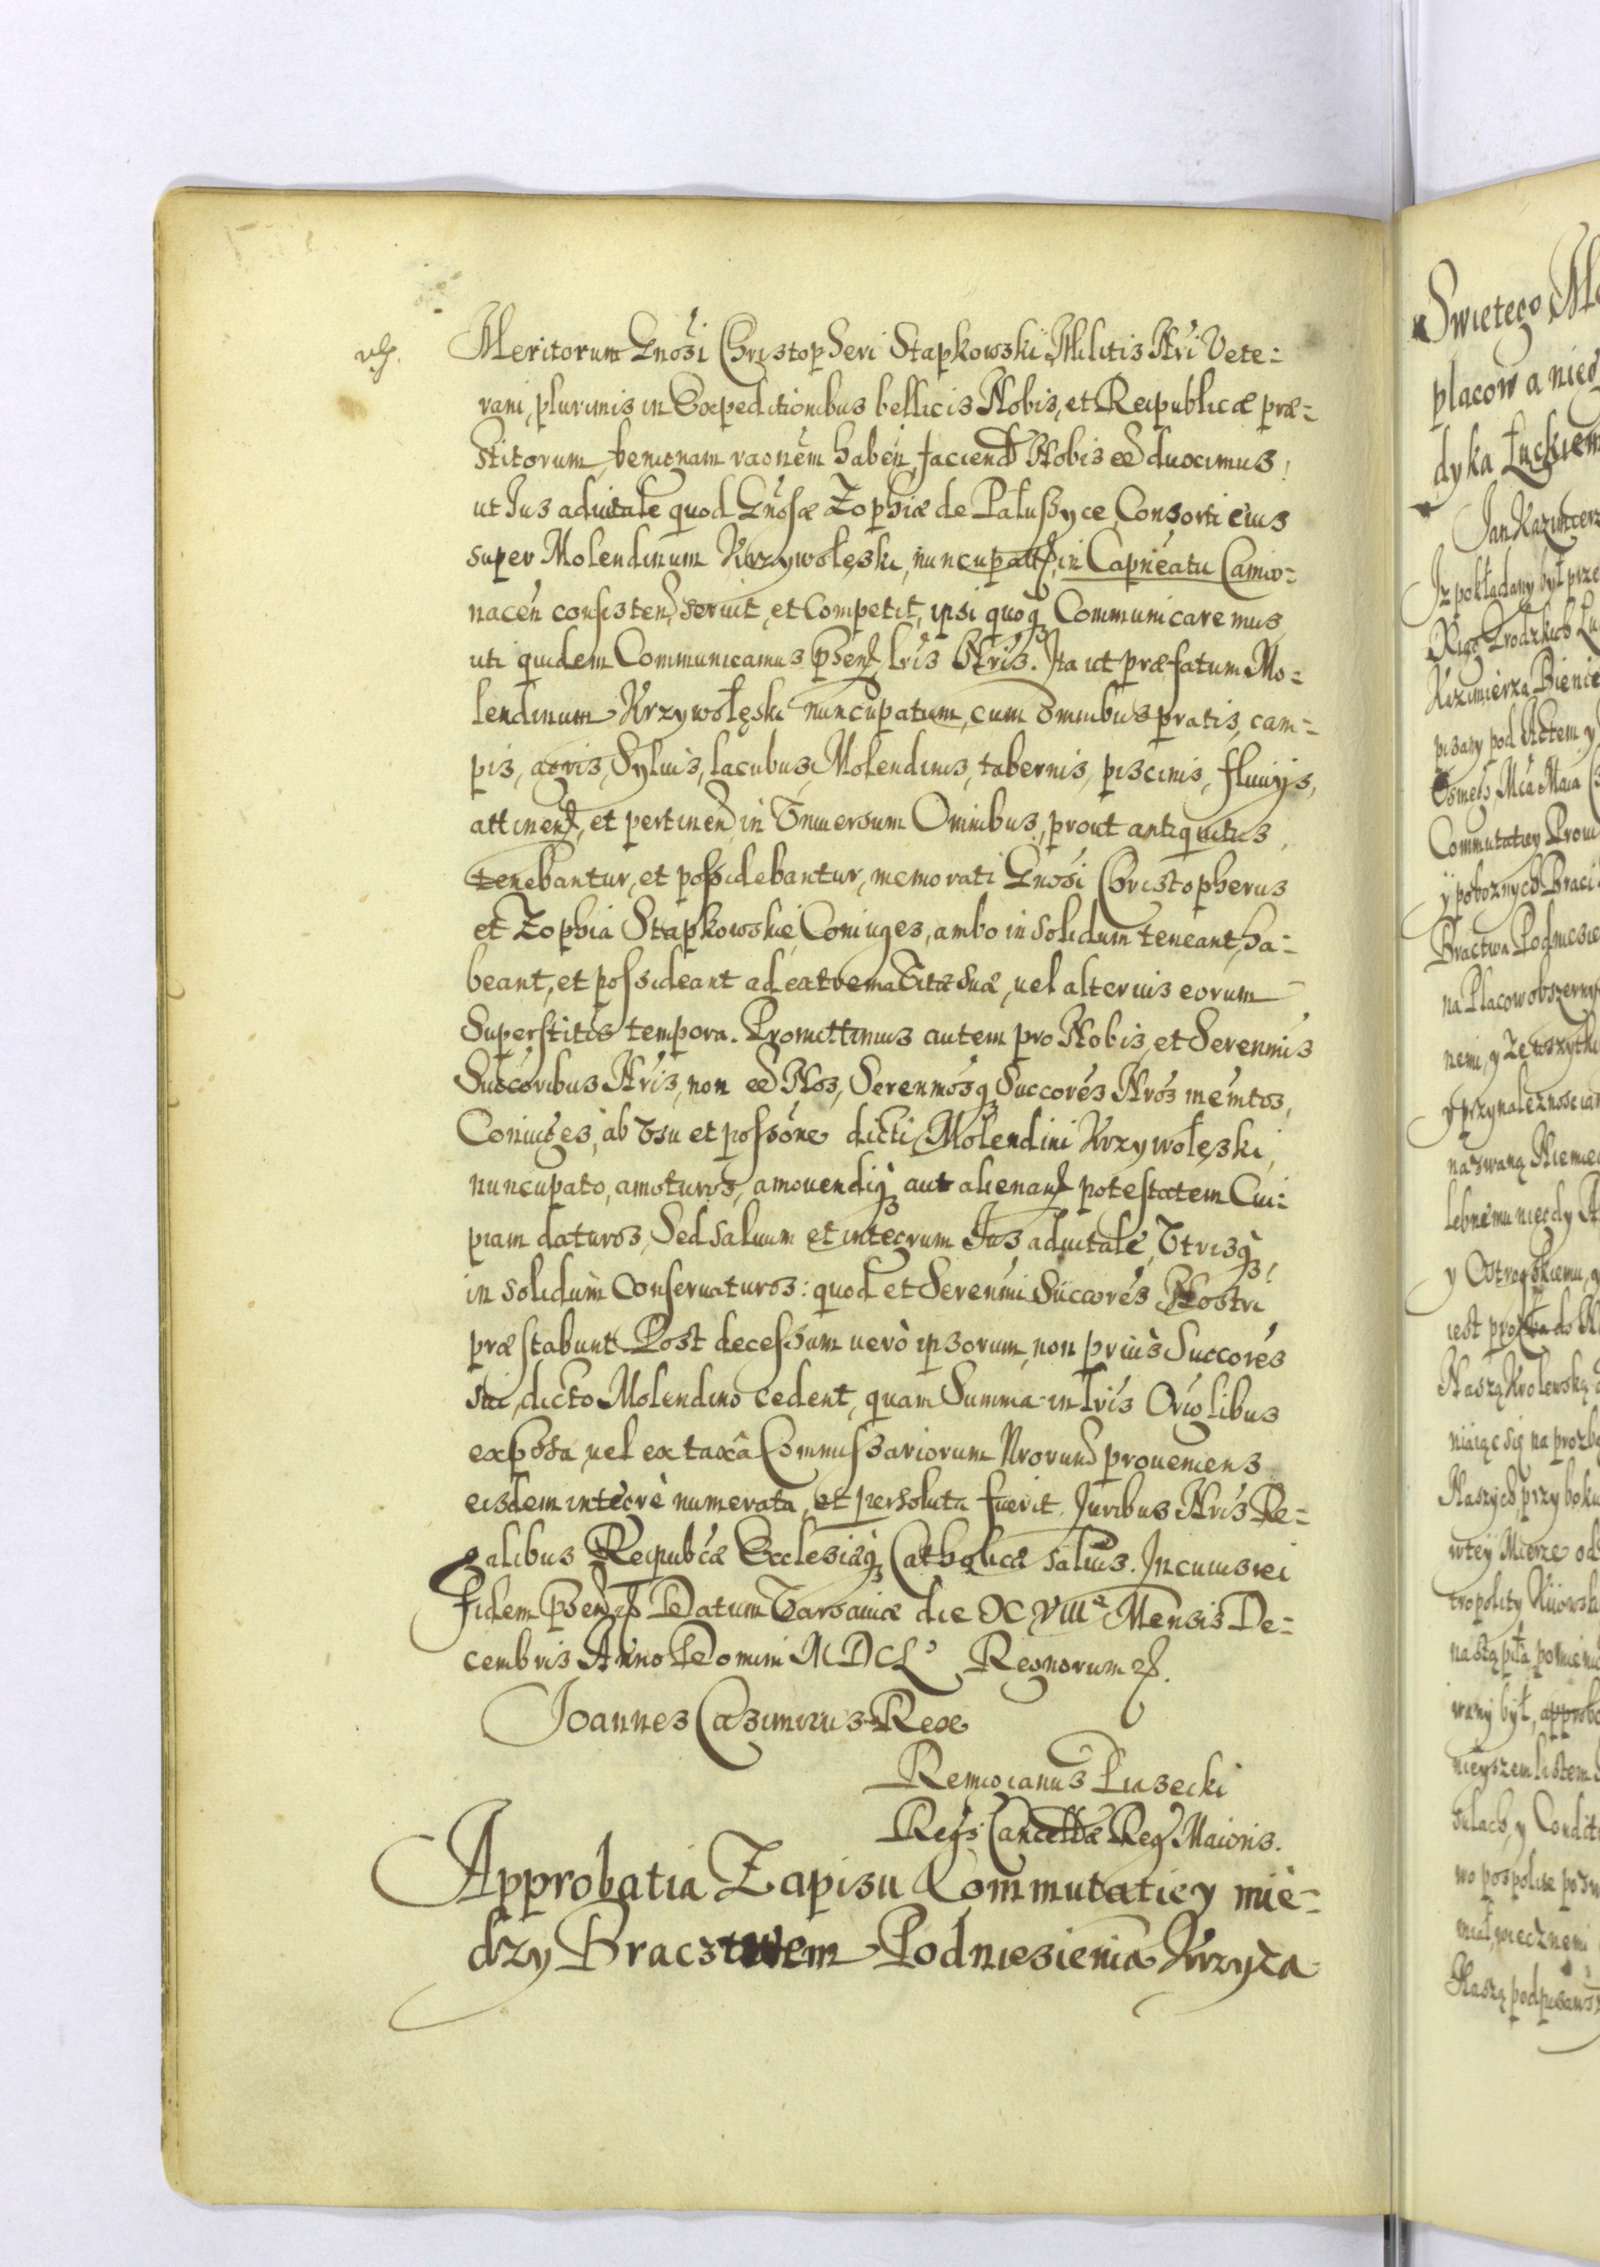 Meritorum Gnosi Christopheri Stapkowski Militis Nri Vete-
rani, plurimis in Expeditionibus bellicis Nobis, et Reipublicæ præ-
stitorum, benignam raonem haben, faciend Nobis ee duximus,
ut Jus aduitale quod Gnosæ Zophiæ de Palussyce Consorti eius
super Molendinum Krzywołęski, nuncupat, in Capneatu Camio-
nacen consisten, seruit, et Competit, ipsi quoq Communicaremus
uti quidem Communicamus psent, lris Nris. Ita ut præfatum Mo-
lendinum Krzywołęski nuncupatum, cum omnibus pratis, cam-
pis, agris, Syluis, lacubus, Molendinis, tabernis, piscinis, fluuijs,
attinen, et pertinen in Vniuersum Omnibus, prout antiquitus,
tenebantur, et possidebantur, memorati Gnosi Christopherus
et Zophia Stapkowskie Coniuges, ambo in solidum teneant, ha-
beant, et possideant ad extrema Vitæ suæ, uel alterius eorum
Superstitis tempora. Promittimus autem pro Nobis, et Serenmis
Succoribus Nris, non ee Nos, Serenmosq Succores Nros memtos,
Coniuges, ab Vsu et possone dicti Molendini Krzywołęski,
nuncupato, amoturos, amouendiq aut alienan potestatem Cui-
piam daturos, Sed saluum et integrum Jus aduitale, Vtrisq
in solidum Conseruaturos: quod et Serenmi Succores Nostri
præstabunt. Post decessum uerò ipsorum, non priùs Succores
sui, dicto Molendino cedent, quam Summa in lris Origlibus
expssa, uel ex taxâ Commissariorum Nrorum proueniens
eisdem integrè numerata, et persoluta fuerit. Juribus Nris Re-
galibus Reipubcæ Ecclesiæq Catholicæ saluis. In cuius rei
fidem psen Datum Varsauiæ die XVIIIa Mensis De-
cembris Anno Domini MDCL° Regnorum
Joannes Casimirus Rex
Remigianus Piasecki
Regs Cancellæ Reg Maioris.
Approbatia Zapisu Commutatiey mie-
dzy Bracstwem Podniesienia Krzyża
Swietego
placow a nieg
dyka Łuckiem
Jan Kazimierz
Iz pokładany był prze
Kazimierza Bienie
pisany pod Aktem y
Commutatiey
y poboznych Braci
Bractwa Podniesie
na Placow obszerny
nemi, y ze wszytki
y przynaleznosciam
nazwaną Niemie
y Ostrogskiemu, y
Naszą Krolewską
niaiąc się na prozbę
Naszych, przy boku
wtey Mierze od
tropolity Kiiowsk
nastąpiła, pomieni
wany był, approbo
nieyszem listem
sulach, y Condit
wo pospolite
Naszą podpisaws